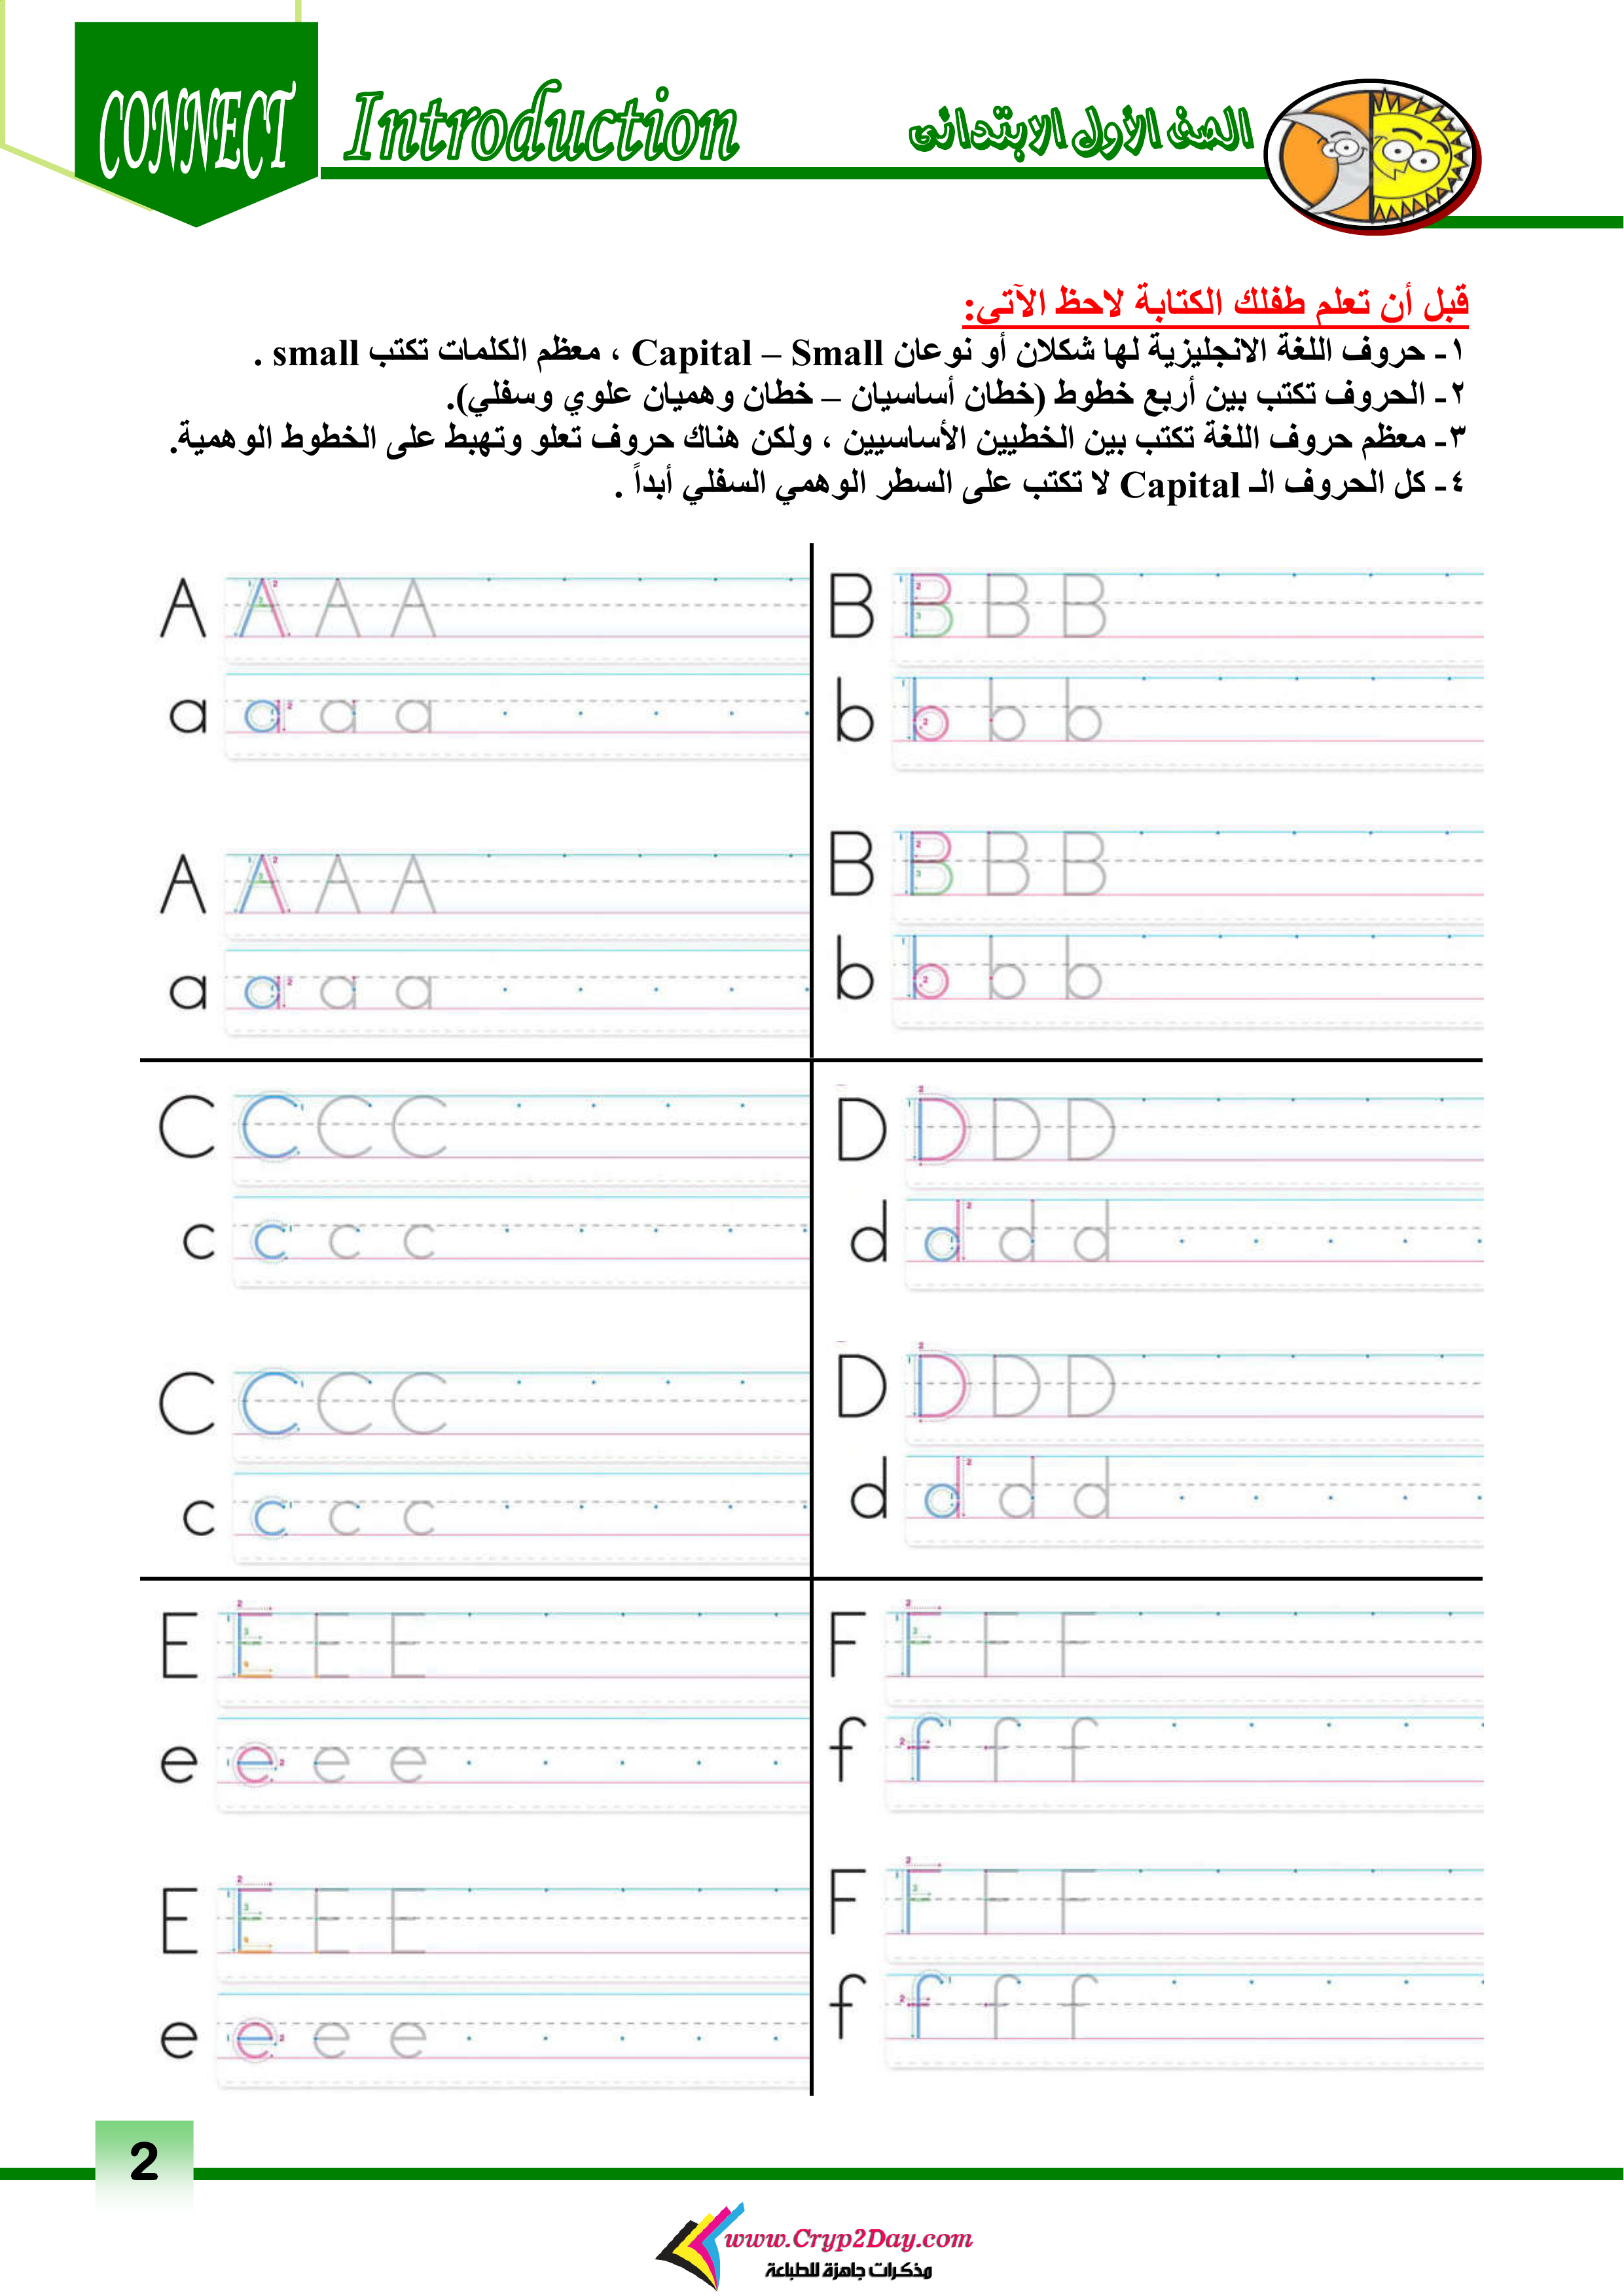 CONNECT
Introduction
الصف الأول الابتدائى
قبل أن تعلم طفلك الكتابة لاحظ الآتي:
١- حروف اللغة الانجليزية لها شكلان أو نوعان Capital – Small ، معظم الكلمات تكتب small .
٢- الحروف تكتب بين أربع خطوط (خطان أساسيان – خطان وهميان علوي وسفلي).
٣- معظم حروف اللغة تكتب بين الخطيين الأساسيين ، ولكن هناك حروف تعلو وتهبط على الخطوط الوهمية.
٤- كل الحروف الـ Capital لا تكتب على السطر الوهمي السفلي أبداً .
A A A A
B B B B
a a a a
b b b b
A A A A
B B B B
a a a a
b b b b
C C C C
D D D D
c c c c
d d d d
C C C C
D D D D
c c c c
d d d d
E E E E
F F F F
e e e e
f f f f
E E E E
F F F F
e e e e
f f f f
2
www.Cryp2Day.com
مذكرات جاهزة للطباعة